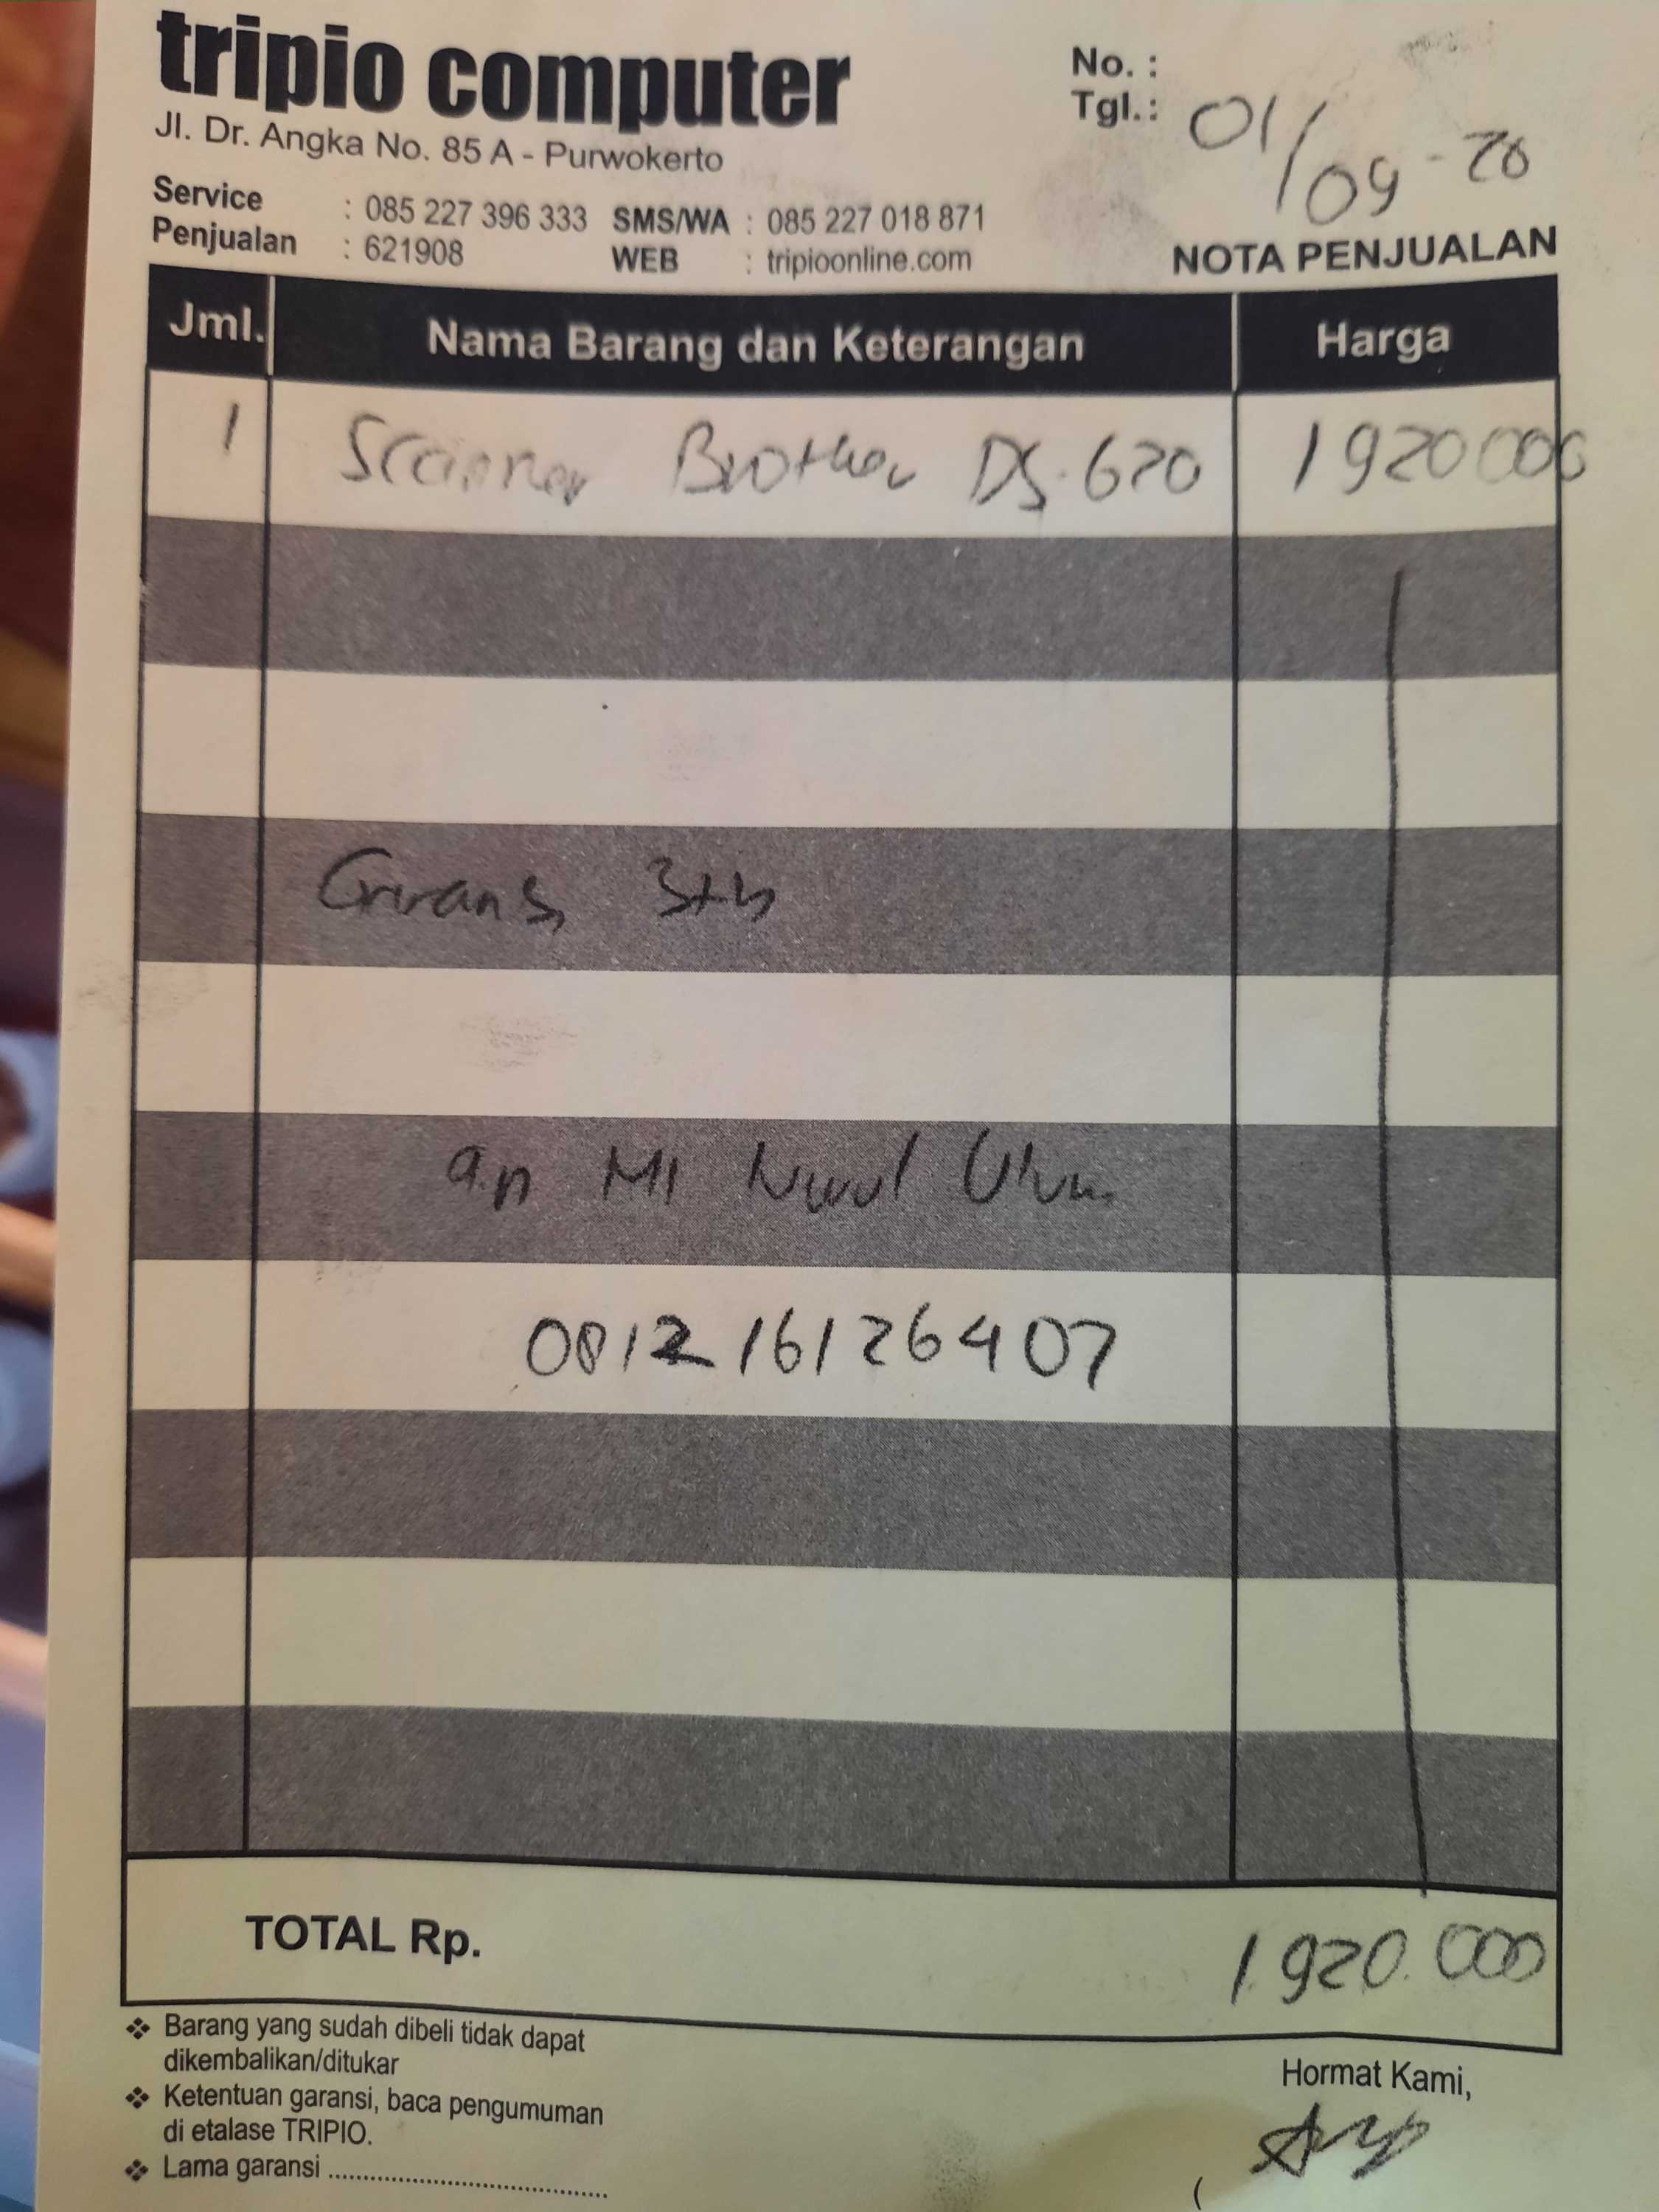 tripio computer
Jl. Dr. Angka No. 85 A - Purwokerto
No. :
Tgl. : 01/09-20
Service : 085 227 396 333 SMS/WA : 085 227 018 871
Penjualan : 621908 WEB : tripioonline.com
NOTA PENJUALAN
Jml. Nama Barang dan Keterangan Harga
1 Scanner Brother DS-620 1920000
Garansi 3th
a.n MI Nurul Ulum
081216126407
TOTAL Rp. 1.920.000
❖ Barang yang sudah dibeli tidak dapat
dikembalikan/ditukar
❖ Ketentuan garansi, baca pengumuman
di etalase TRIPIO.
❖ Lama garansi ........................................
Hormat Kami,
(